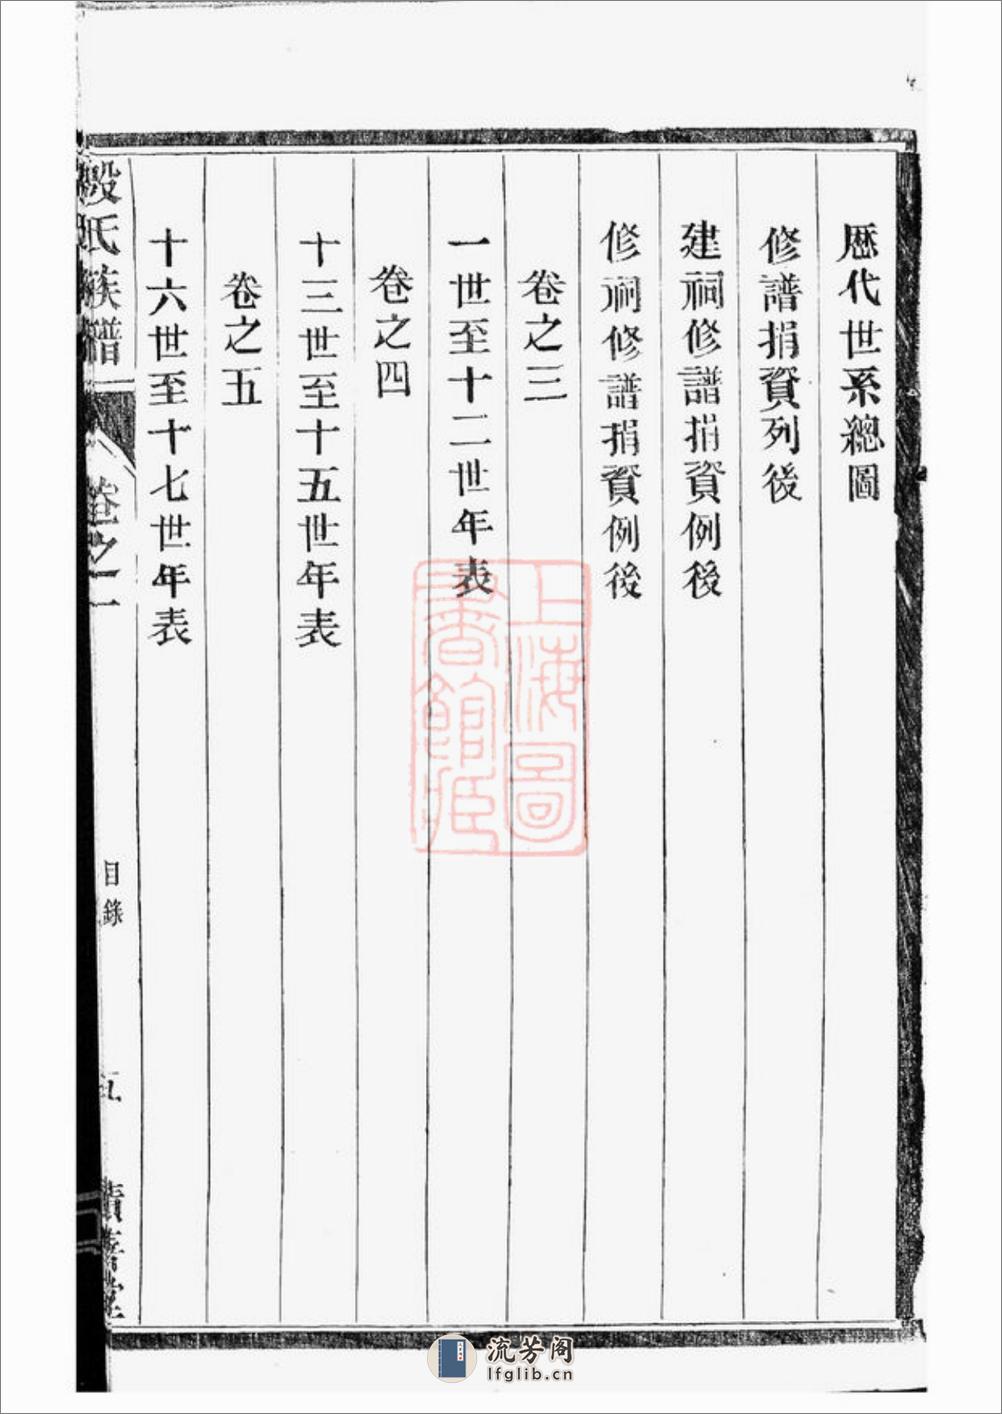 歷代世系總圖
修譜捐資列後
建祠修譜捐資例後
修祠修譜捐資例後
卷之三
一世至十二世年表
卷之四
十三世至十五世年表
卷之五
十六世至十七世年表
氏族譜
卷之一
目錄
五
善堂
上海圖
書館藏
流芳阁
lfglib.cn